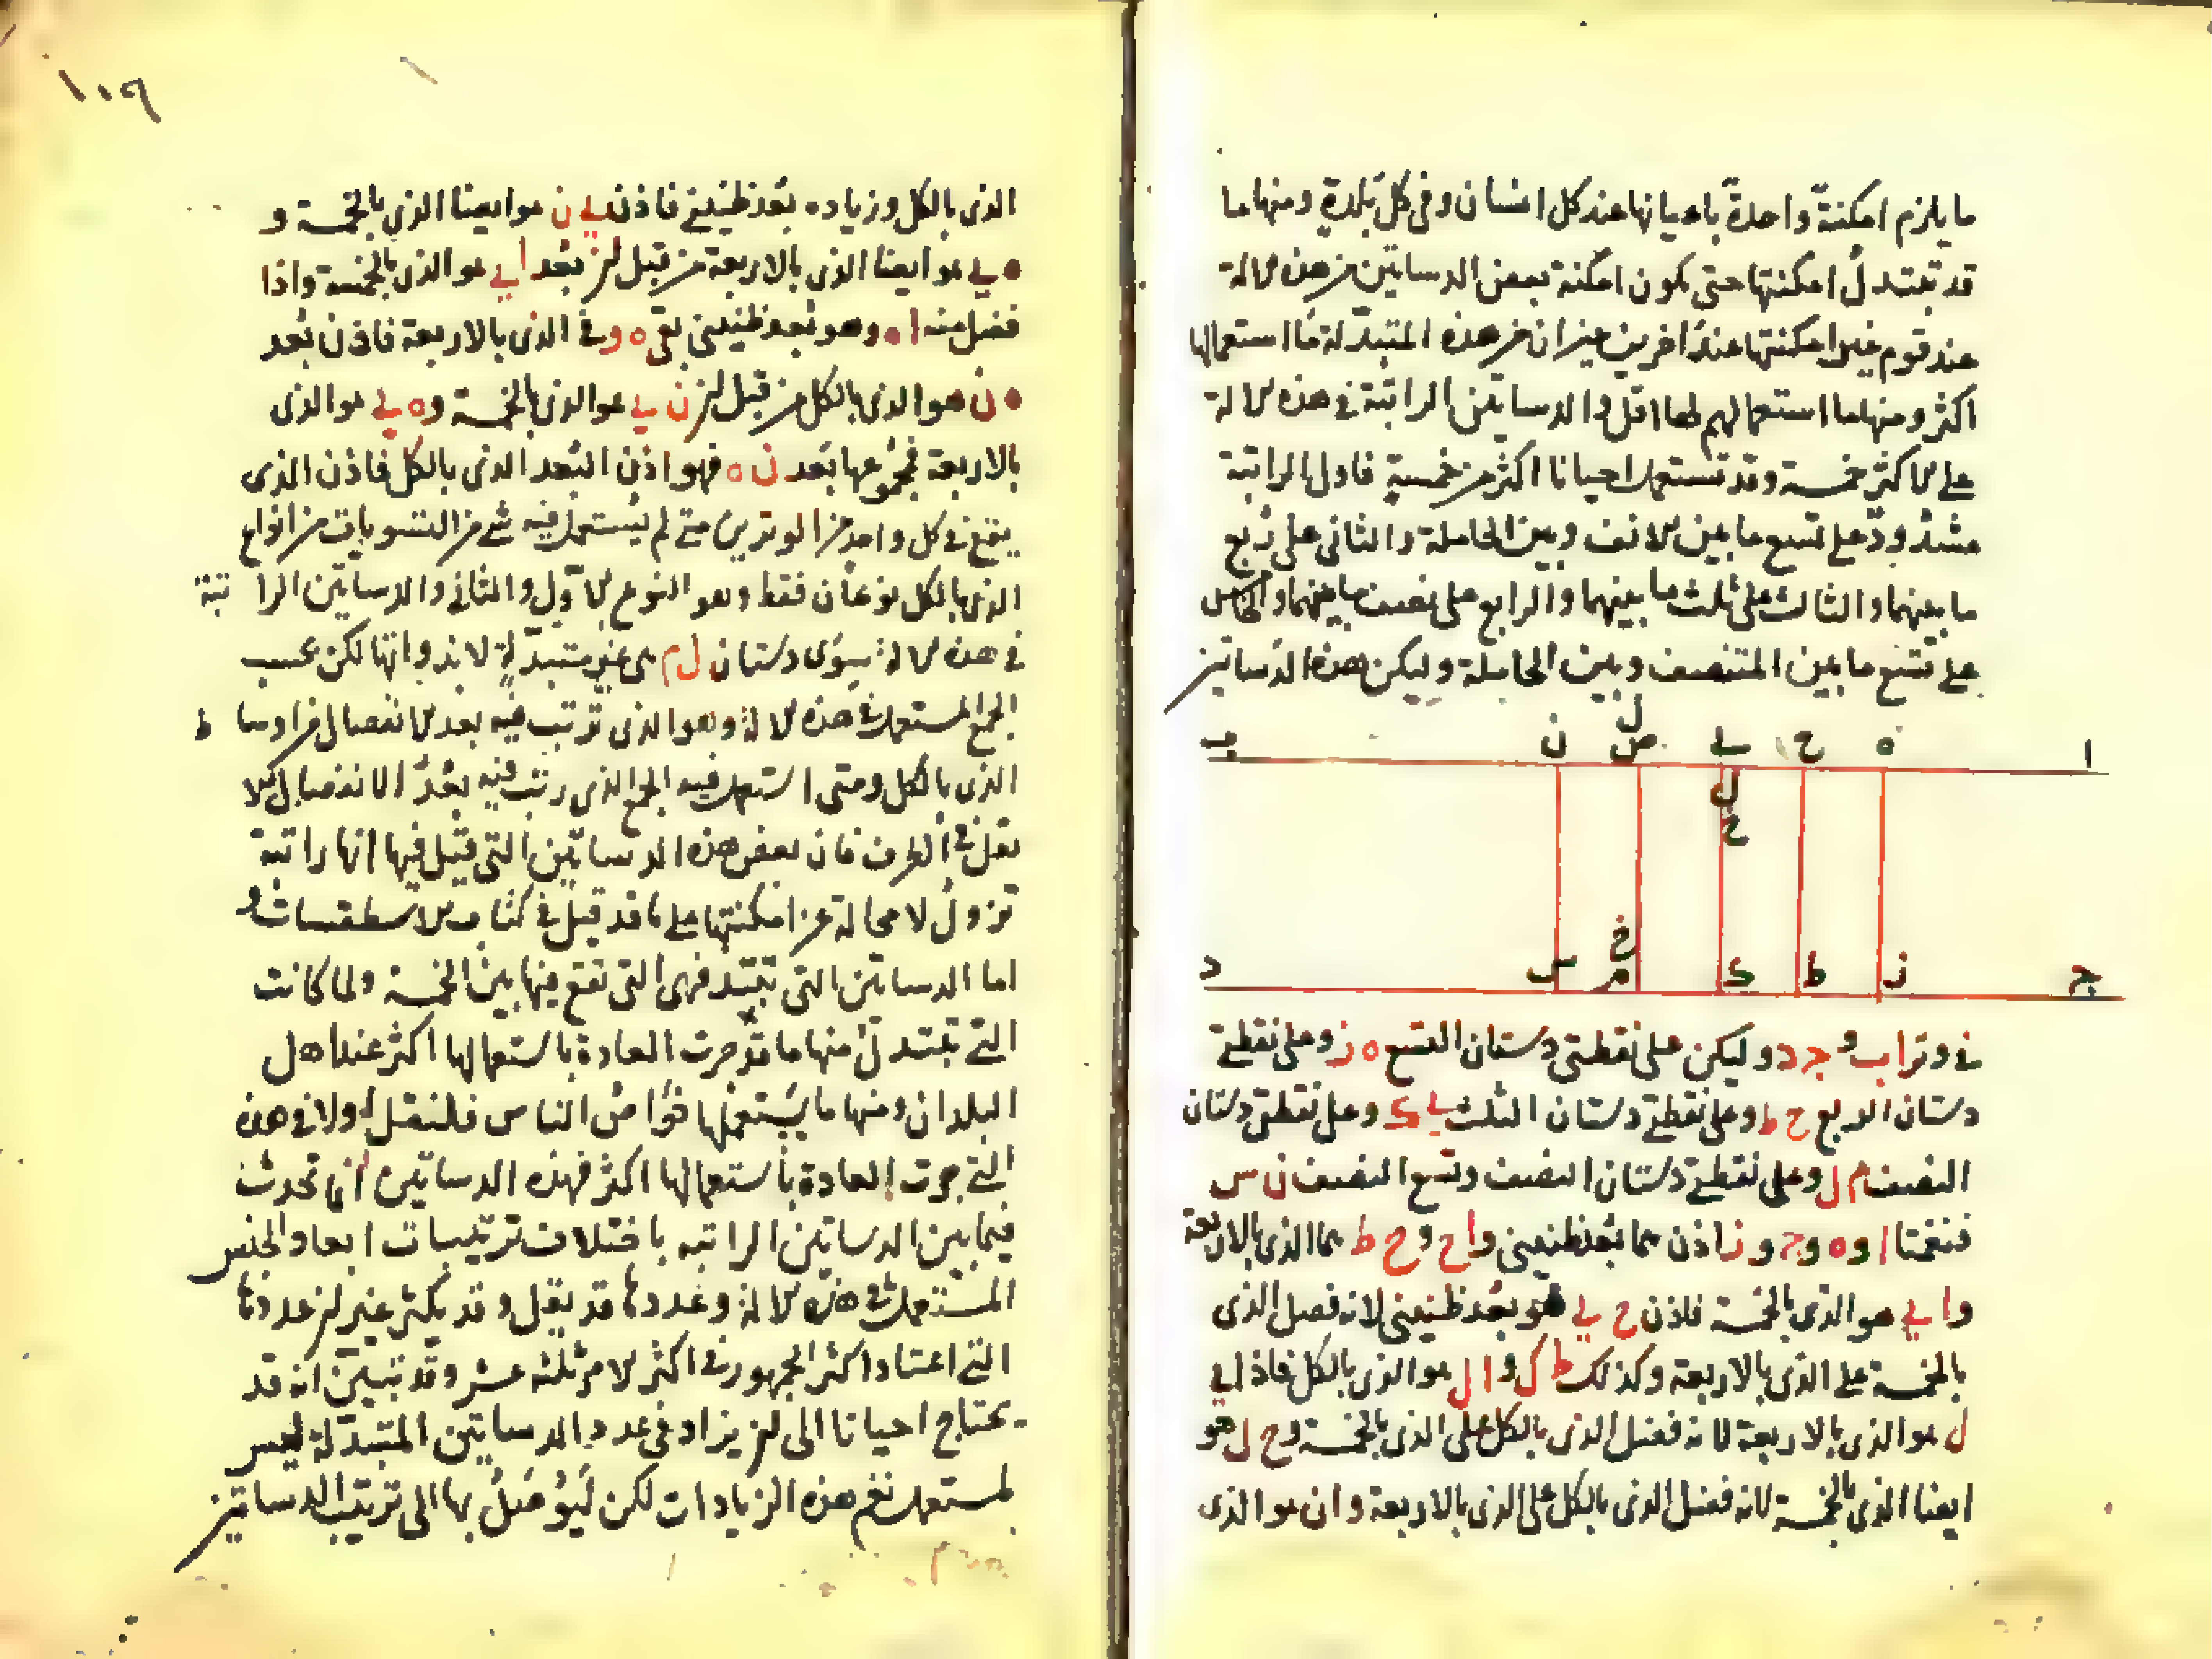 ما يلزم امكنة واحدة باعيانها عند كل انسان وفي كل بلدة ومنها ما
قد تبتدل امكنتها حتى يكون امكنة بعض الدساتين من هذه الالة
عند قوم غير امكنتها عند اخرين غير ان من هذه المتبدلة ما استعمالها
اكثر ومنها ما استعمالهم لها اقل والدساتين الراتبة في هذه الالة
على الاكثر خمسة وقد تستعمل احيانا اكثر من خمسة فاول الراتبة
مشدود على تسع ما بين الانف وبين الحاملة والثاني على ربع
ما بينهما والثالث على ثلث ما بينهما والرابع على نصف ما بينهما والخامس
على تسع ما بين المنتصف وبين الحاملة وليكن هذه الدساتين
ا ه ح ي ل ن ب
ج ز ط ك م س د
في وترا ب و ج د وليكن على نقطتي دستان التسع ه ز وعلى نقطتي
دستان الربع ح ط وعلى نقطتي دستان الثلث ي ك وعلى نقطتي دستان
النصف م ل وعلى نقطتي دستان النصف وتسع النصف ن س
فنغمتا ا و ه و ج و ز اذن هما بعد طنيني و ا ح و ح ط هما الذي بالاربعة
و ا ي هو الذي بالخمسة فاذن ح ي هو بعد طنيني لانه فصل الذي
بالخمسة على الذي بالاربعة وكذلك ط ك و ا ل هو الذي بالكل فاذا ي
ل هو الذي بالاربعة لانه فضل الذي بالكل على الذي بالخمسة و ح ل هو
ايضا الذي بالخمسة لانه فضل الذي بالكل على الذي بالاربعة و ا ن هو الذي
١٠٩
الذي بالكل وزياده بعد طنيني فاذن ي ن هو ايضا الذي بالخمسة و
ه ي هو ايضا الذي بالاربعة من قبل ان بعد ا ي هو الذي بالخمسة واذا
فضل منه ا ه وهو بعد طنيني بقي ه و في الذي بالاربعة فاذن بعد
ه ن هو الذي بالكل من قبل ان ن ي هو الذي بالخمسة و ه ي هو الذي
بالاربعة فمجموعها بعد ن ه فهو اذن البعد الذي بالكل فاذن الذي
يقع في كل واحد من الوترين متى لم يستعمل فيه شي من التسويات من انواع
الذي بالكل نوعان فقط وهو النوع الاول والثاني والدساتين الراتبة
في هذه الالة سوى دستان ل م هي غير متبدلة لابذواتها لكن بحسب
الجمع المستعمل في هذه الالة وهو الذي ترتب فيه بعد الانفصال من اوساط
الذي بالكل ومتى استعمل فيه الجمع الذي رتب فيه بعد الانفصال
في الطرف فان بعض هذه الدساتين التي قيل فيها انها راتبة
تزول لا محالة عن امكنتها على ما قد قيل في كتاب الاسطقسات و
اما الدساتين التي تبتدل فهي التي تقع فيما بين الخمسة ولما كانت
التي تبتدل منها ما قد جرت العادة باستعمالها اكثر عند اهل
البلدان ومنها ما يستعملها خواص الناس فلنقل اولا في هذه
التي جرت العادة باستعمالها اكثر فهذه الدساتين انما تحدث
فيما بين الدساتين الراتبه باختلاف ترتيبات ابعاد الجنس
المستعمل في هذه الالة وعددها قد يقل وقد يكثر غير ان عددها
التي اعتاد اكثر الجمهور في اكثر الامر ثلثه عشر وقد تبين انه قد
يحتاج احيانا الى ان يزاد في عدد الدساتين المتبدلة ليس
لمستعمل نغم هذه الزيادات لكن ليوصل بها الى ترتيب الدساتين